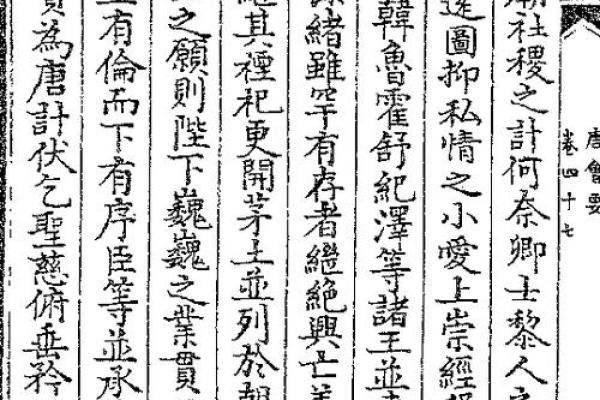 唐會要
卷四十七
社稷之計何奈卿士黎人之
圖抑私情之小愛上崇經
韓魯霍舒紀澤等諸王並
緒雖罕有存者繼絶興亡
其禋祀更開茅土並列於朝
之願則陛下巍巍之業貫
有倫而下有序臣等並承
為唐計伏乞聖慈俯垂矜